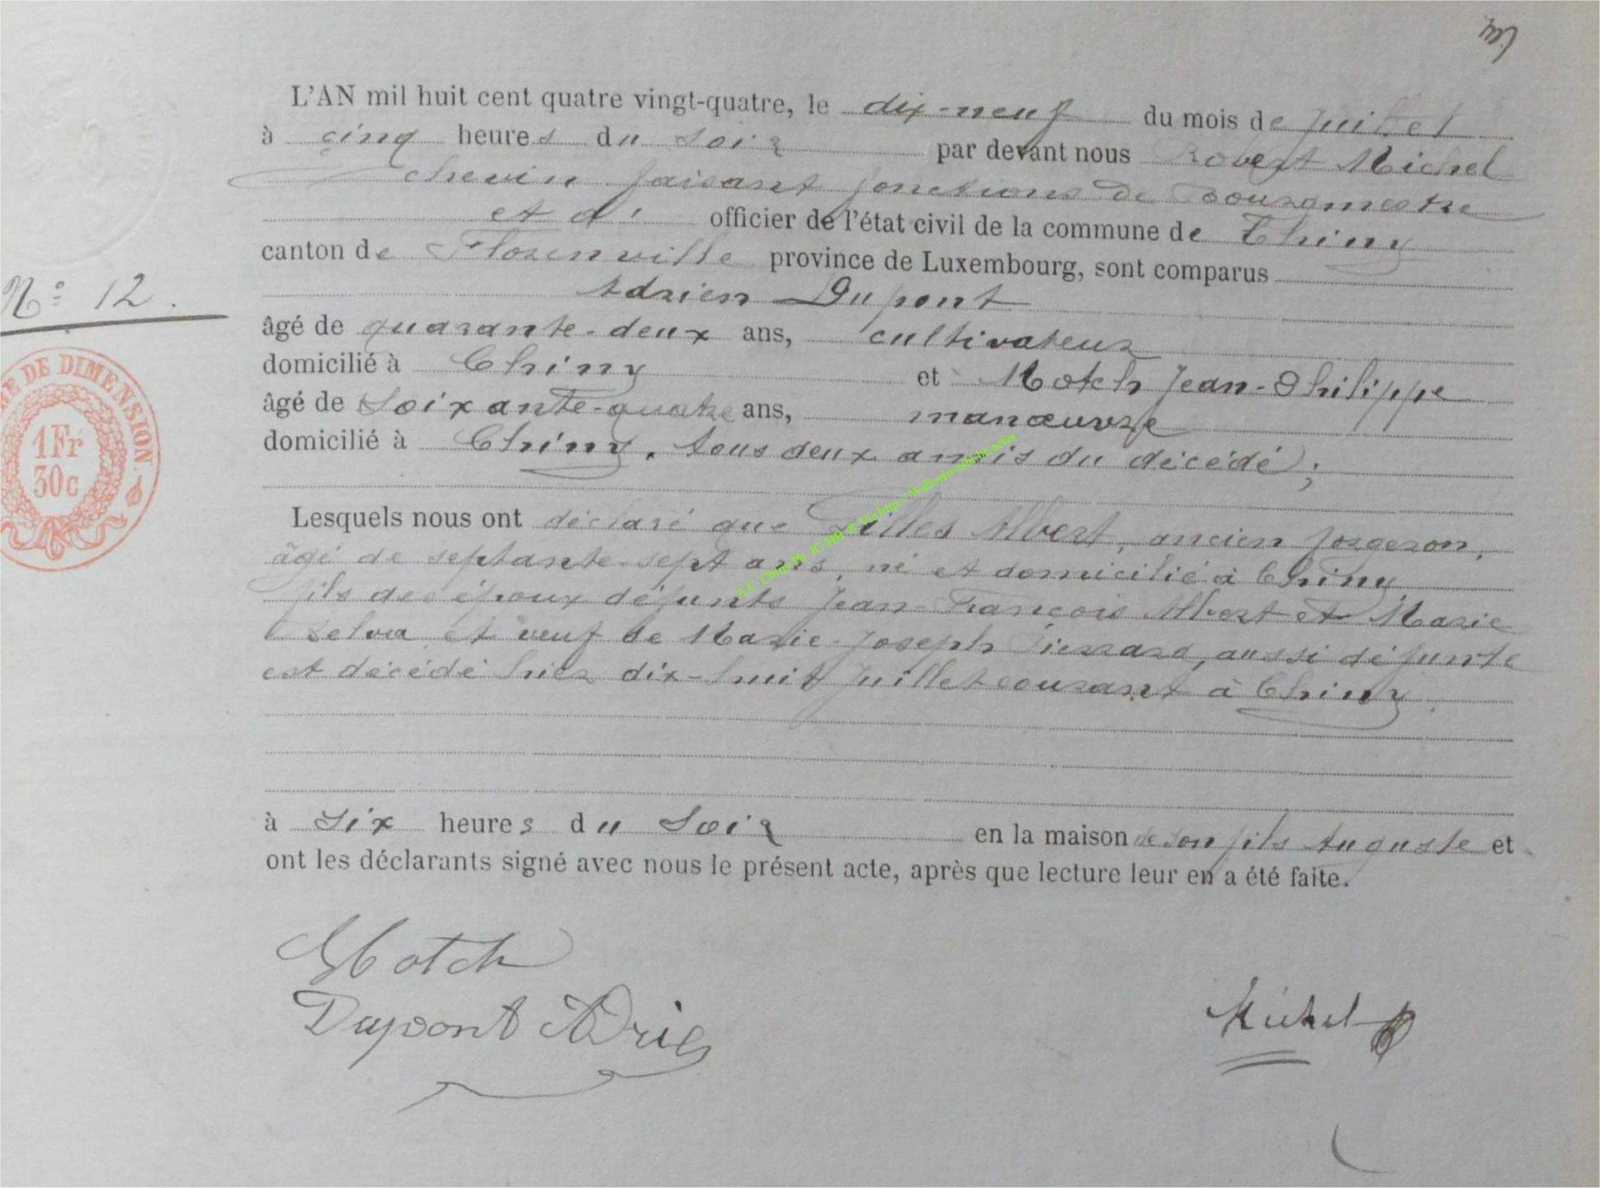 L'AN mil huit cent quatre vingt-quatre, le dix-neuf du mois de juillet
à cinq heures du soir par devant nous Robert Michel
échevin faisant fonctions de Bourgmestre
et d' officier de l'état civil de la commune de Chiny
canton de Florenville province de Luxembourg, sont comparus
Adrien Dupont
âgé de quarante-deux ans, cultivateur
N° 12.
domicilié à Chiny et Motch Jean-Philippe
âgé de soixante-quatre ans, manœuvre
domicilié à Chiny, tous deux amis du décédé;
DE DIMENSION.
1Fr
30c
Lesquels nous ont déclaré que Gilles Albert, ancien forgeron,
âgé de septante-sept ans, né et domicilié à Chiny
fils des époux défunts Jean-François Albert et Marie
et veuf de Marie-Joseph Pierrard, aussi défunte
est décédé hier dix-huit juillet courant à Chiny.
à six heures du soir en la maison de son fils Auguste et
ont les déclarants signé avec nous le présent acte, après que lecture leur en a été faite.
Motch
Dupont Adrien
Michel